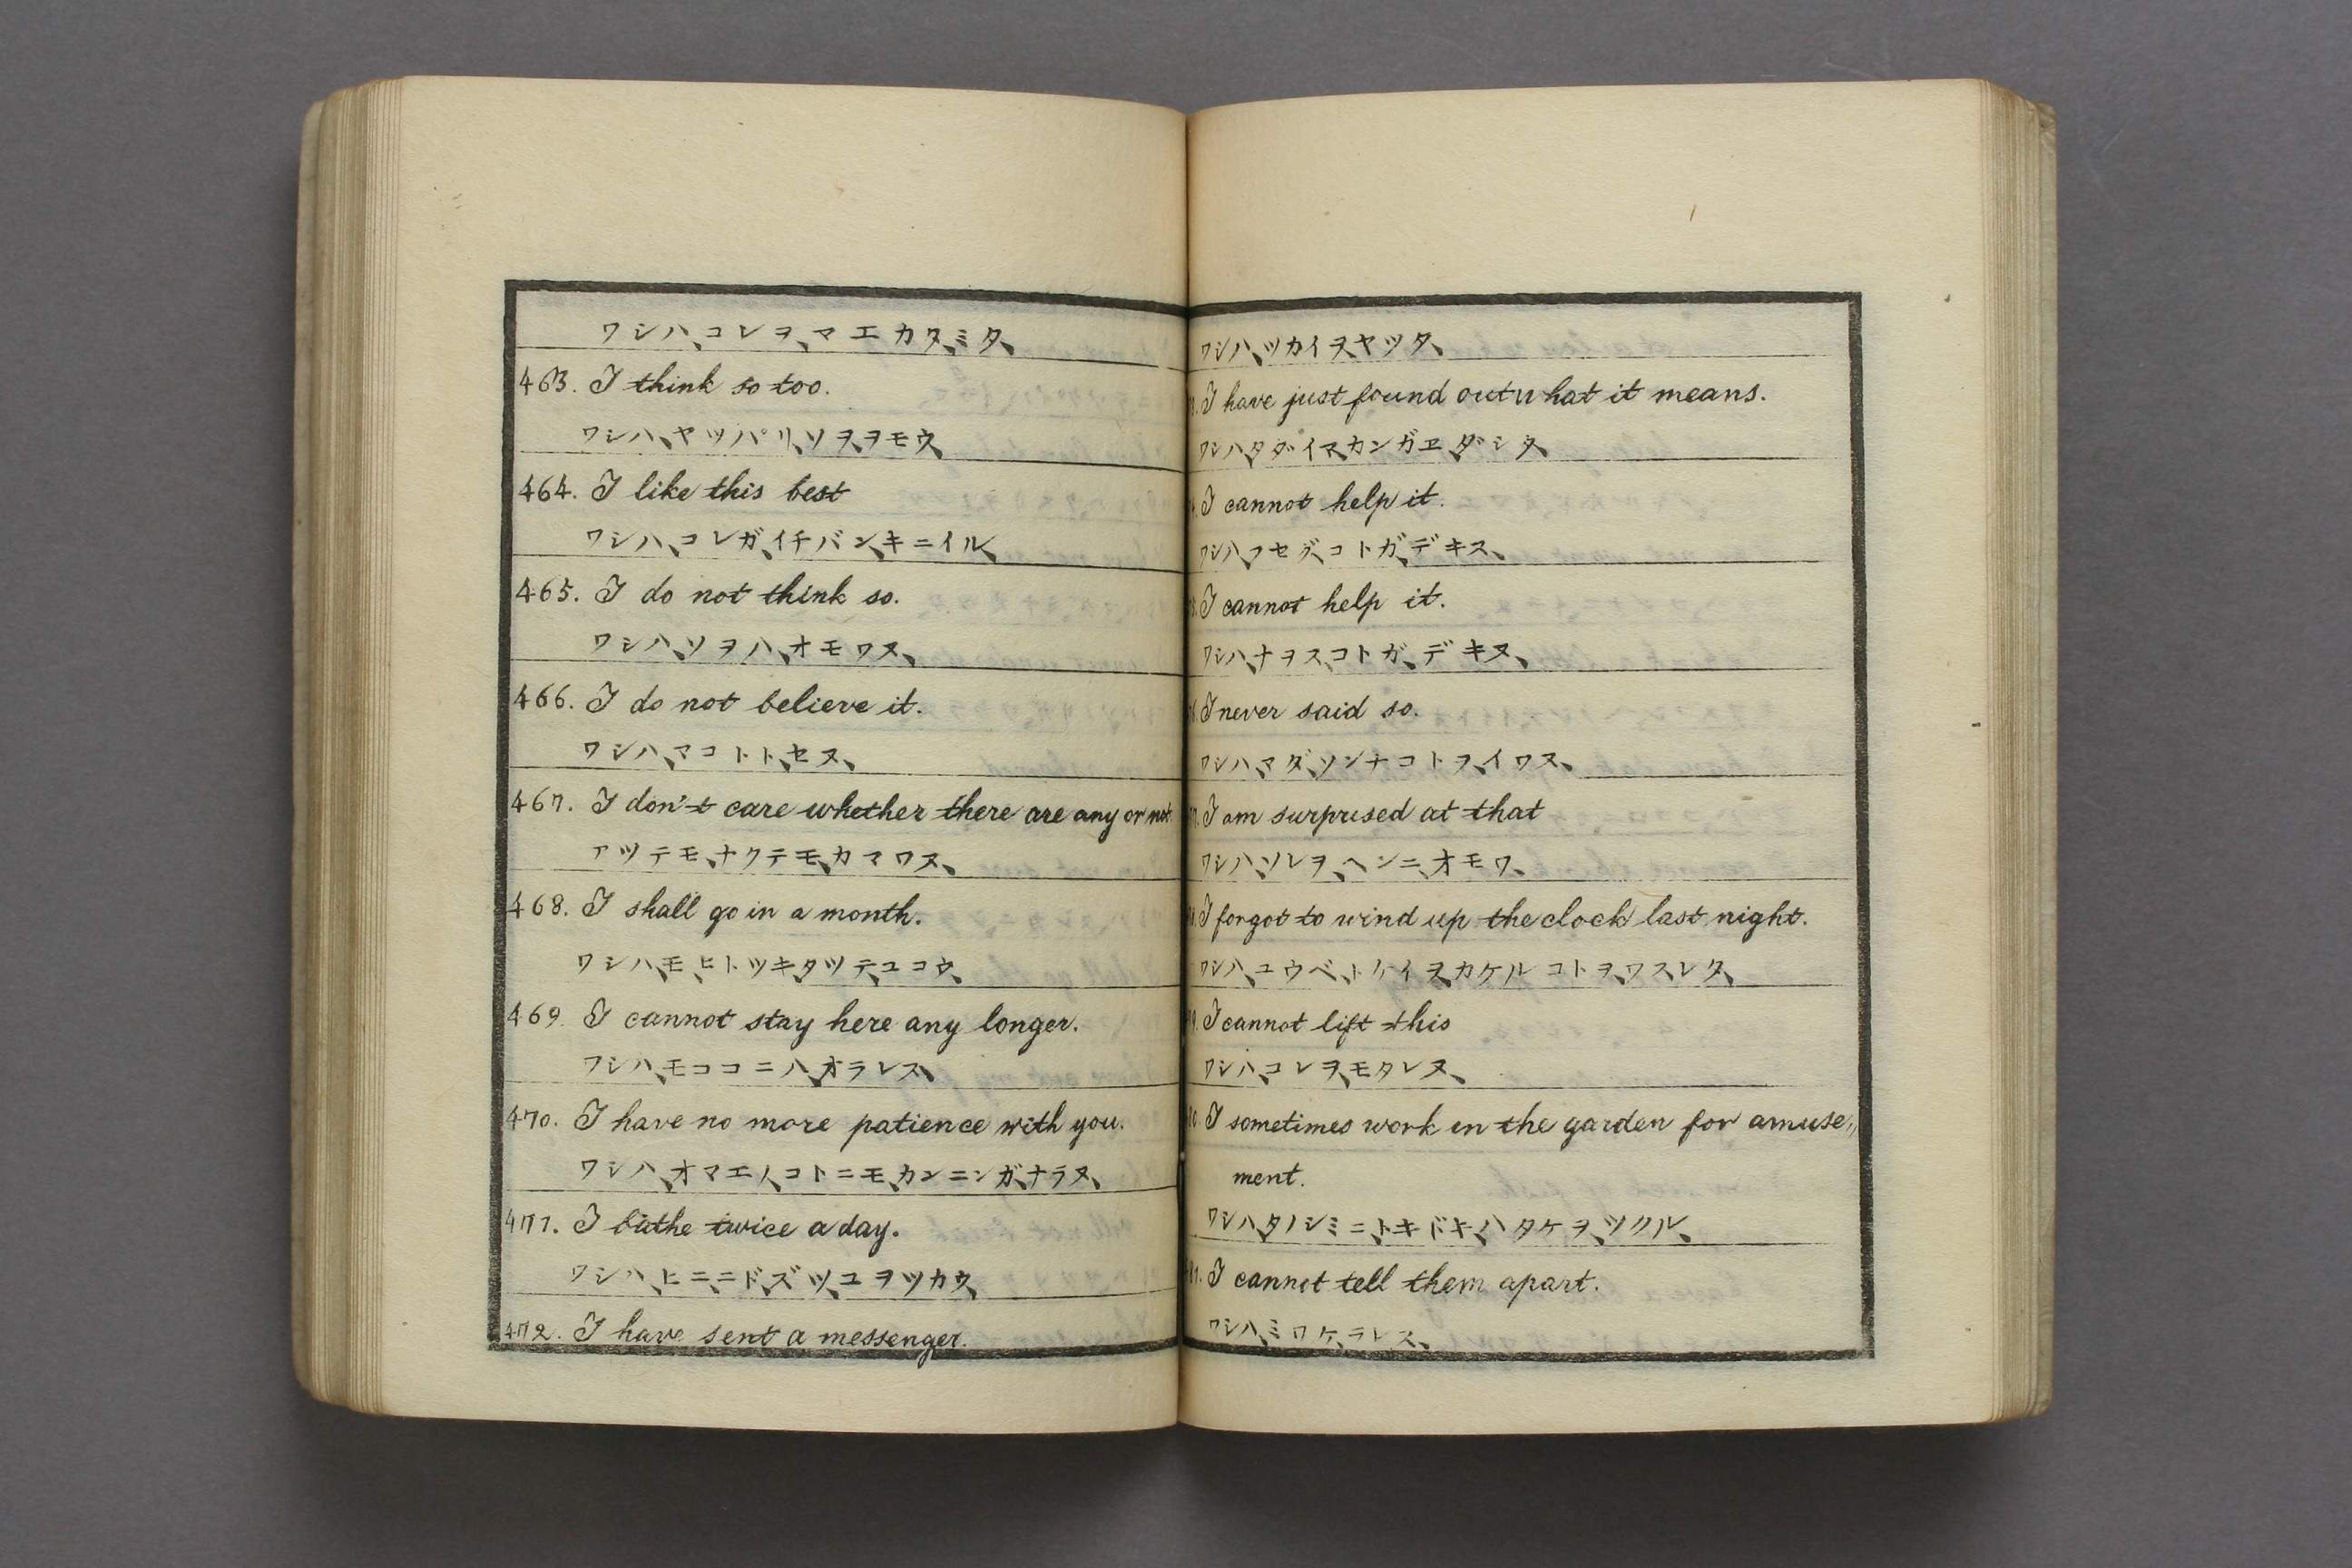 ワシハ、コレヲ、マエカタ、ミタ、
463. I think so too.
ワシハ、ヤツパリ、ソヲ、ヲモウ、
464. I like this best
ワシハ、コレガ、イチバン、キニイル、
465. I do not think so.
ワシハ、ソヲハ、オモワヌ、
466. I do not believe it.
ワシハ、マコトト、セヌ、
467. I don't care whether there are any or not.
アツテモ、ナクテモ、カマワヌ、
468. I shall go in a month.
ワシハ、モ、ヒトツキ、タツテ、ユコウ、
469. I cannot stay here any longer.
ワシハ、モココニハ、オラレヌ、
470. I have no more patience with you.
ワシハ、オマエノ、コトニモ、カンニンガ、ナラヌ、
471. I bathe twice a day.
ワシハ、ヒニ、ニド、ズツ、ユヲツカウ、
472. I have sent a messenger.
ワシハ、ツカイヲ、ヤツタ、
I have just found out what it means.
ワシハ、タダイマ、カンガヱ、ダシタ、
I cannot help it.
ワシハ、フセグ、コトガ、デキヌ、
I cannot help it.
ワシハ、ナヲス、コトガ、デキヌ、
I never said so.
ワシハ、マダ、ソンナコトヲ、イワヌ、
I am surprised at that
ワシハ、ソレヲ、ヘンニ、オモワ、
I forgot to wind up the clock last night.
ワシハ、ユウベ、トケイヲ、カケルコトヲ、ワスレタ、
I cannot lift this
ワシハ、コレヲ、モタレヌ、
I sometimes work in the garden for amuse,,
ment.
ワシハ、タノシミニ、トキドキ、ハタケヲ、ツクル、
I cannot tell them apart.
ワシハ、ミワケ、ラレヌ、